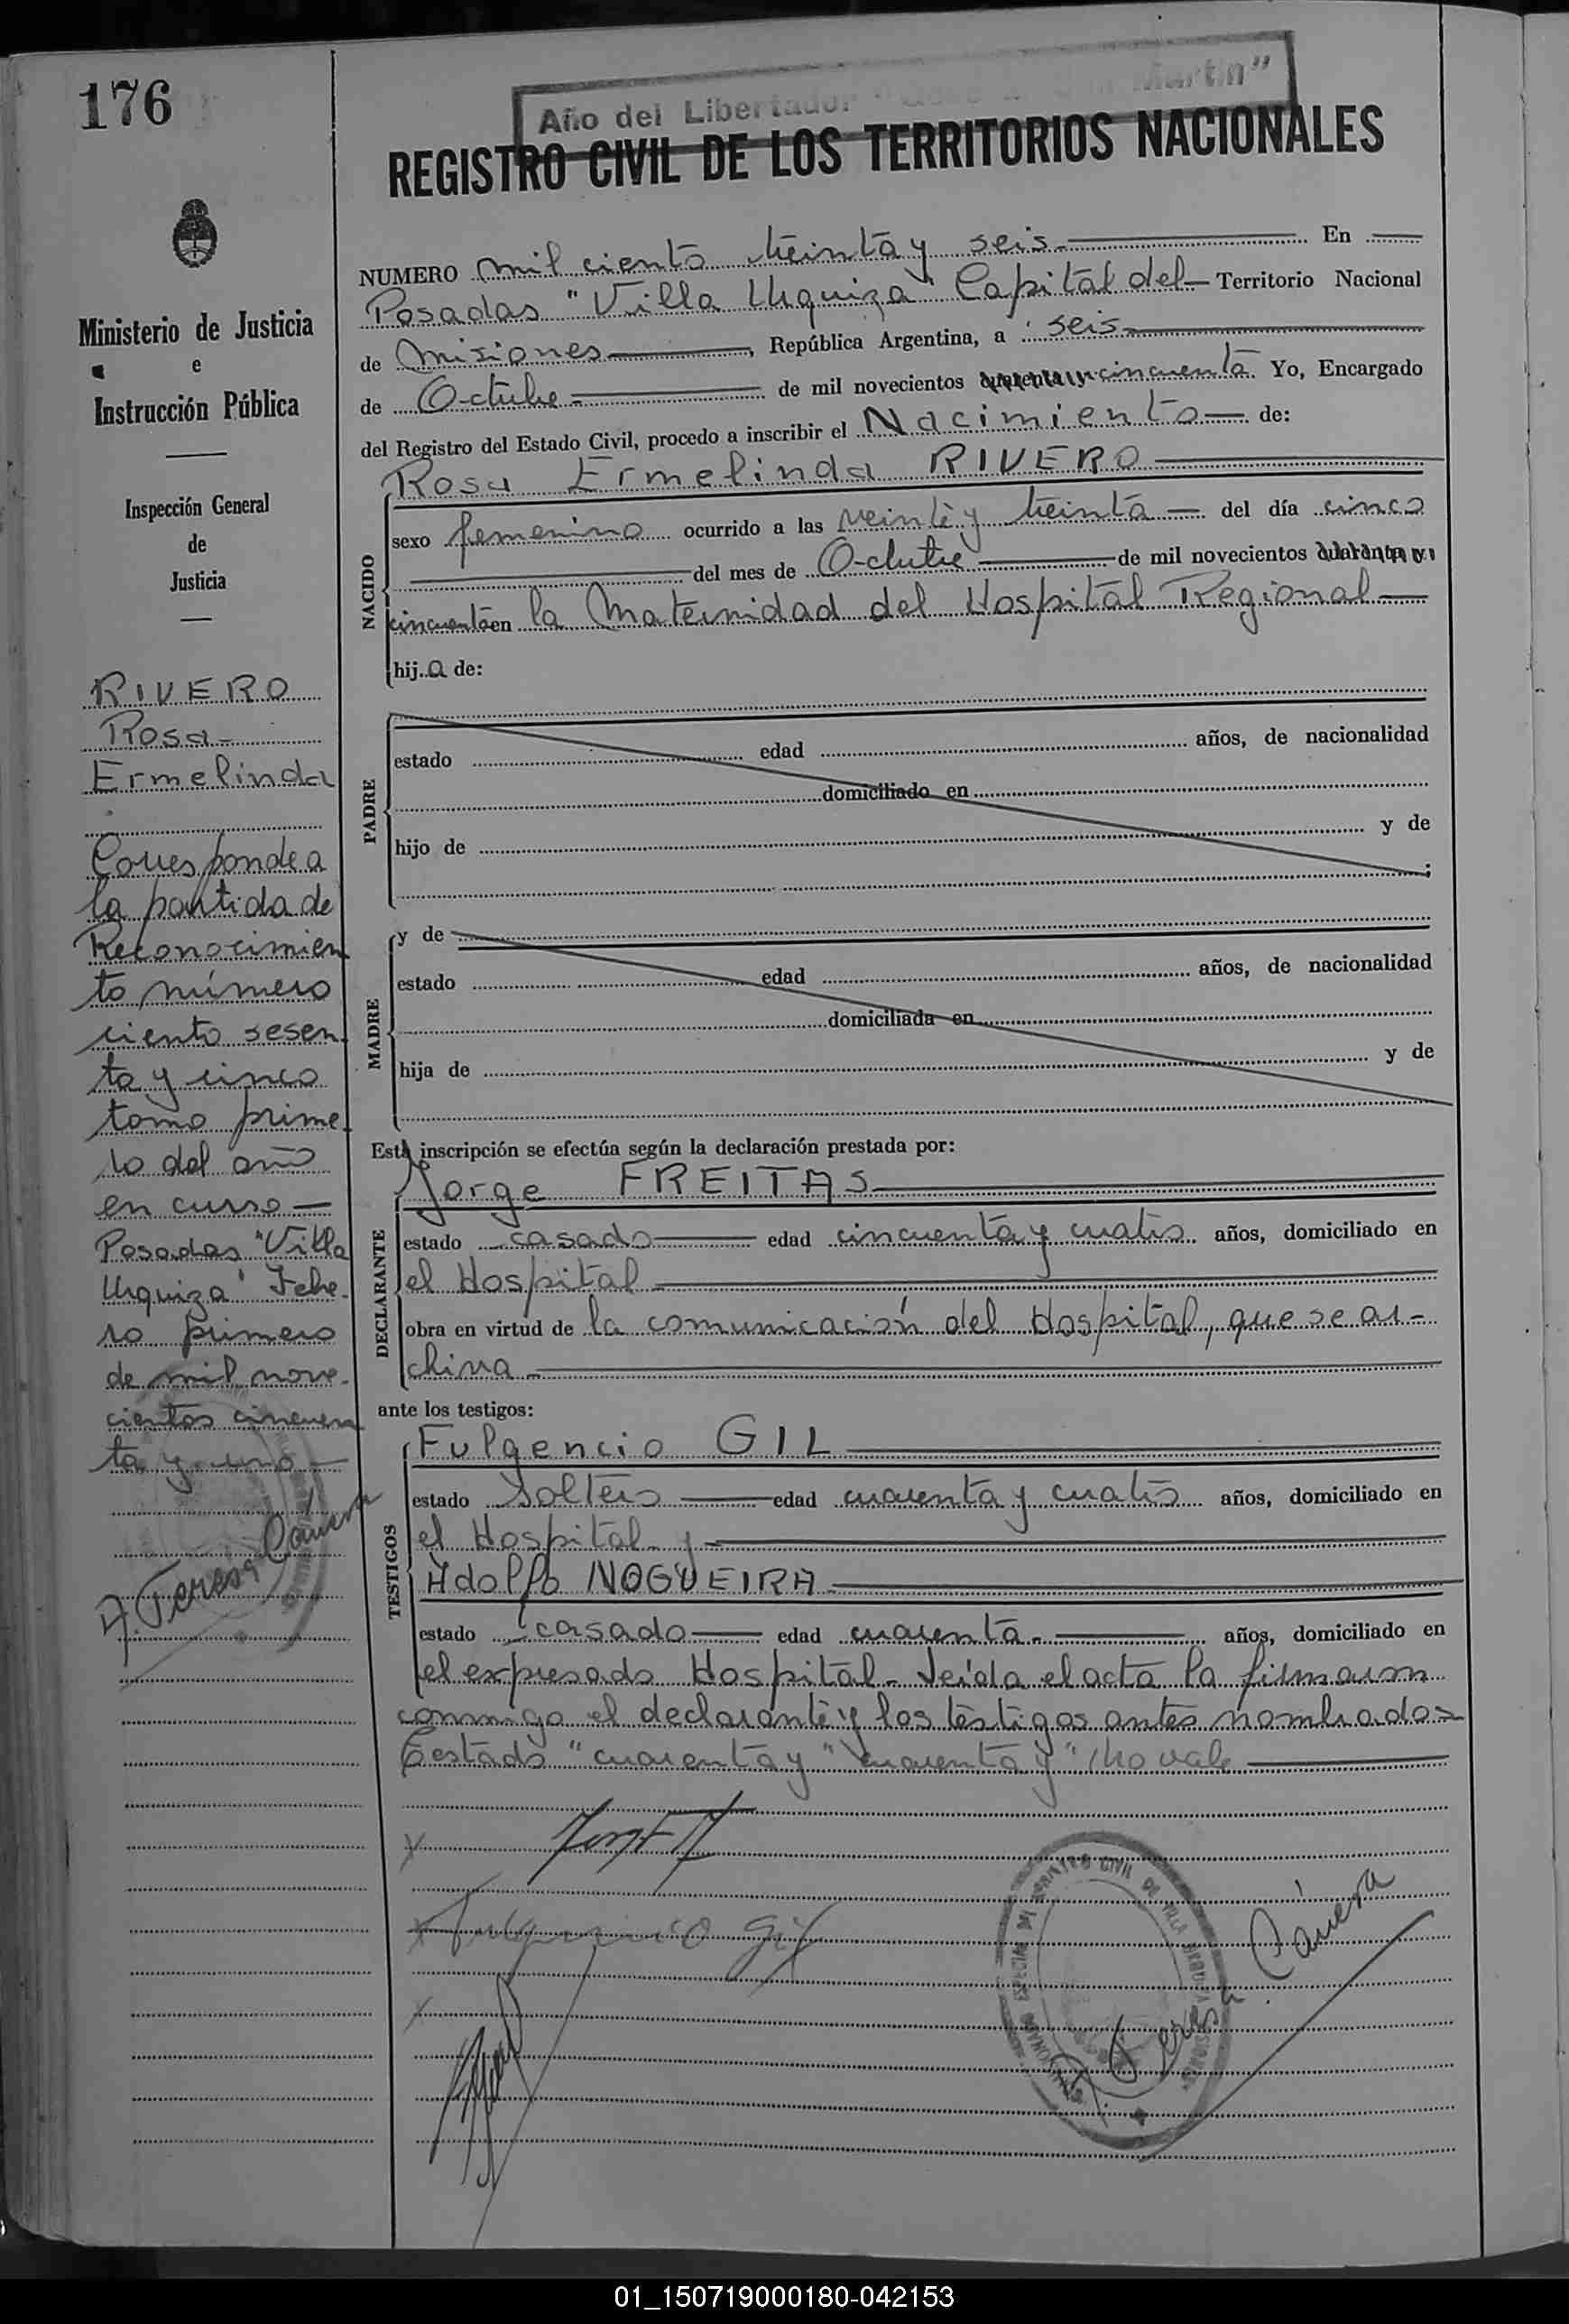 176
Año del Libertador Martin"
REGISTRO CIVIL DE LOS TERRITORIOS NACIONALES
Ministerio de Justicia
e
Instrucción Pública
Inspección General
de
Justicia
RIVERO
Rosa-
Ermelinda
Corresponde a
la partida de
Reconocimien
to número
ciento sesen
ta y cinco
tomo prime
ro del año
en curso —
Posadas "Villa
Urquiza" Febre-
ro primero
de mil nove-
cientos cincuen
ta y uno —
A. Teresa Cánera
NUMERO mil ciento treinta y seis- En
Posadas "Villa Urquiza" Capital del— Territorio Nacional
de Misiones—, República Argentina, a seis-
de Octubre- de mil novecientos cuarenta y cincuenta Yo, Encargado
del Registro del Estado Civil, procedo a inscribir el Nacimiento— de:
Rosa Ermelinda RIVERO
NACIDO
sexo femenino ocurrido a las veinte y treinta — del día cinco
del mes de Octubre de mil novecientos cuarenta y
cincuenta en la Maternidad del Hospital Regional—
hij..a de:
PADRE
estado edad años, de nacionalidad
domiciliado en
hijo de y de
;
MADRE
y de
estado edad años, de nacionalidad
domiciliada en
hija de y de
Esta inscripción se efectúa según la declaración prestada por:
DECLARANTE
Jorge FREITAS
estado casado edad cincuenta y cuatro años, domiciliado en
el Hospital
obra en virtud de la comunicación del Hospital, que se ar-
chiva-
ante los testigos:
TESTIGOS
Fulgencio GIL
estado soltero edad cuarenta y cuatro años, domiciliado en
el Hospital y
Adolfo NOGUEIRA
estado casado edad cuarenta- años, domiciliado en
el expresado Hospital- Leída el acta la firmaron
conmigo el declarante y los testigos antes nombrados-
Testado "cuarenta y" "cuarenta y" No vale
Fulgencio Gil
REGISTRO CIVIL DE VILLA URQUIZA
A. Teresa Cánera
01_150719000180-042153